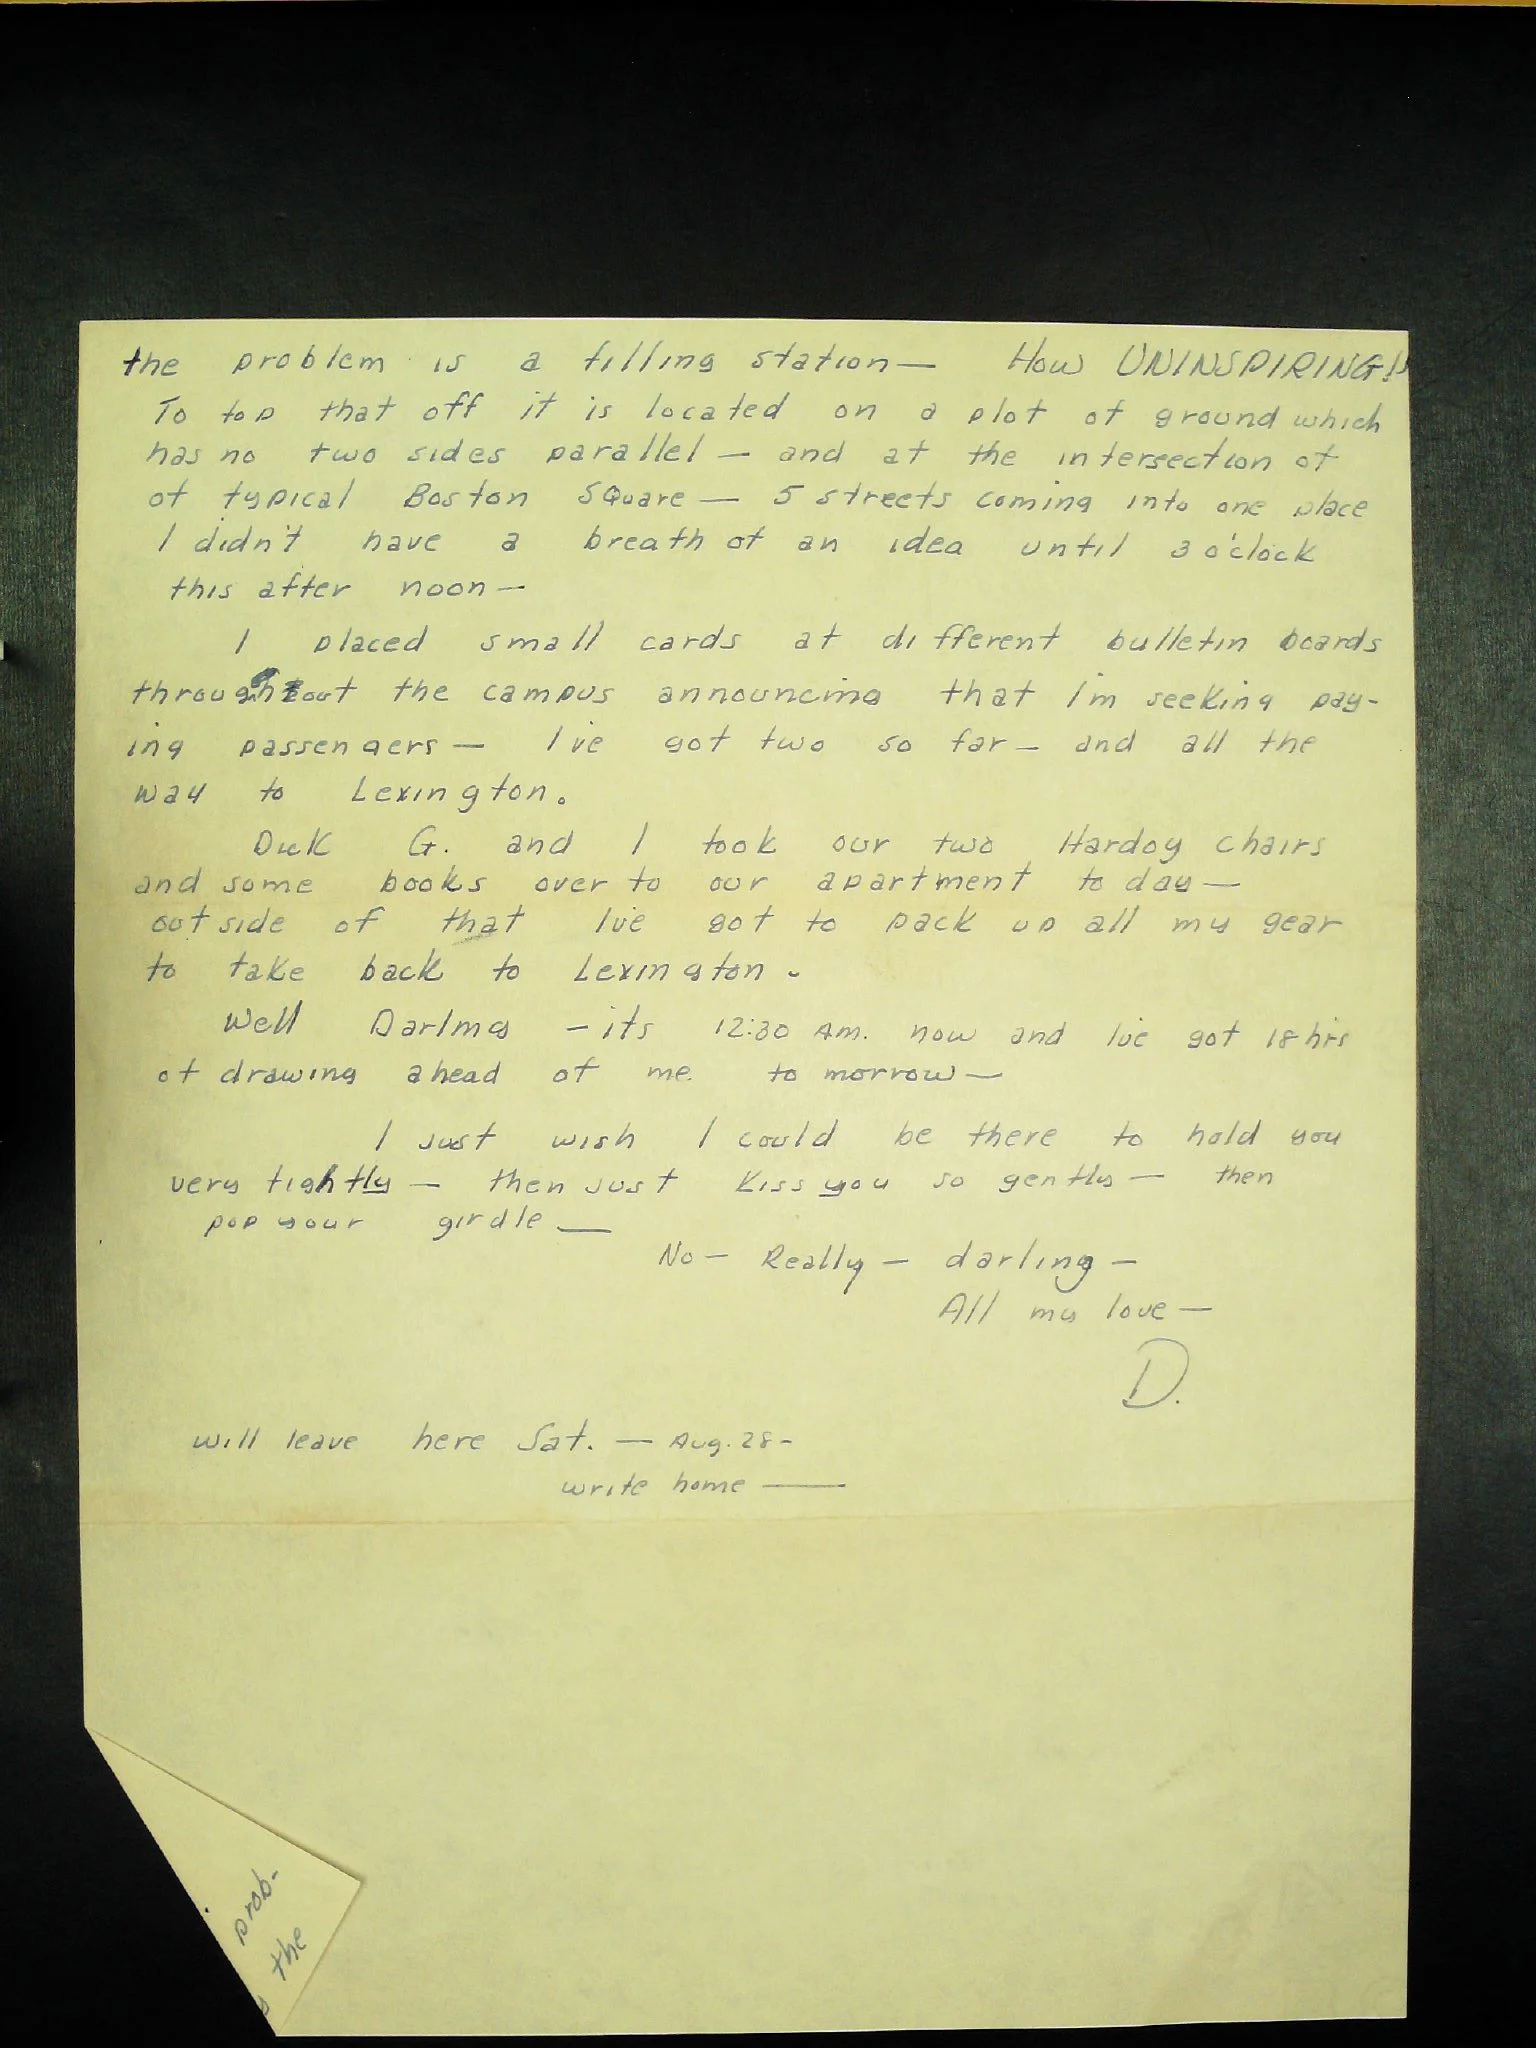 the problem is a filling station — How UNINSPIRING!!
To top that off it is located on a plot of ground which
has no two sides parallel — and at the intersection of
of typical Boston Square — 5 streets coming into one place
I didn't have a breath of an idea until 3 o'clock
this after noon —
I placed small cards at different bulletin boards
throughout the campus announcing that I'm seeking pay-
ing passengers — I've got two so far — and all the
way to Lexington.
Dick G. and I took our two Hardoy chairs
and some books over to our apartment to day —
outside of that I've got to pack up all my gear
to take back to Lexington.
Well Darling — its 12:30 AM. now and I've got 18 hrs
of drawing ahead of me to morrow —
I just wish I could be there to hold you
very tightly — then just kiss you so gently — then
pop your girdle —
No — Really — darling —
All my love —
D.
will leave here Sat. — Aug. 28 -
write home —
prob-
the